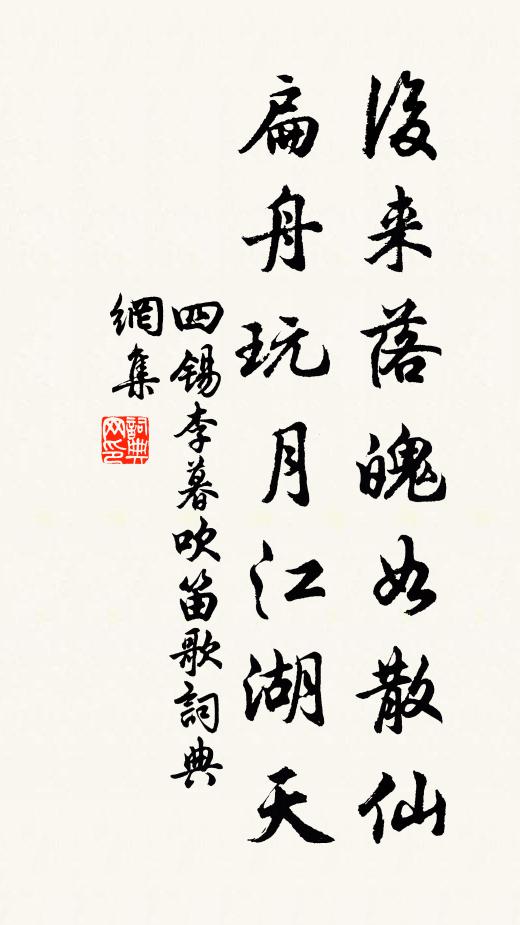 後来落魄如散仙
扁舟玩月江湖天
四锡李暮吹笛歌詞典
網集
詞典
网印